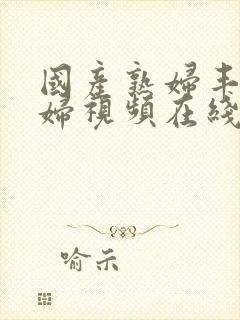 國產熟婦丰
婦視頻在綫
喻示